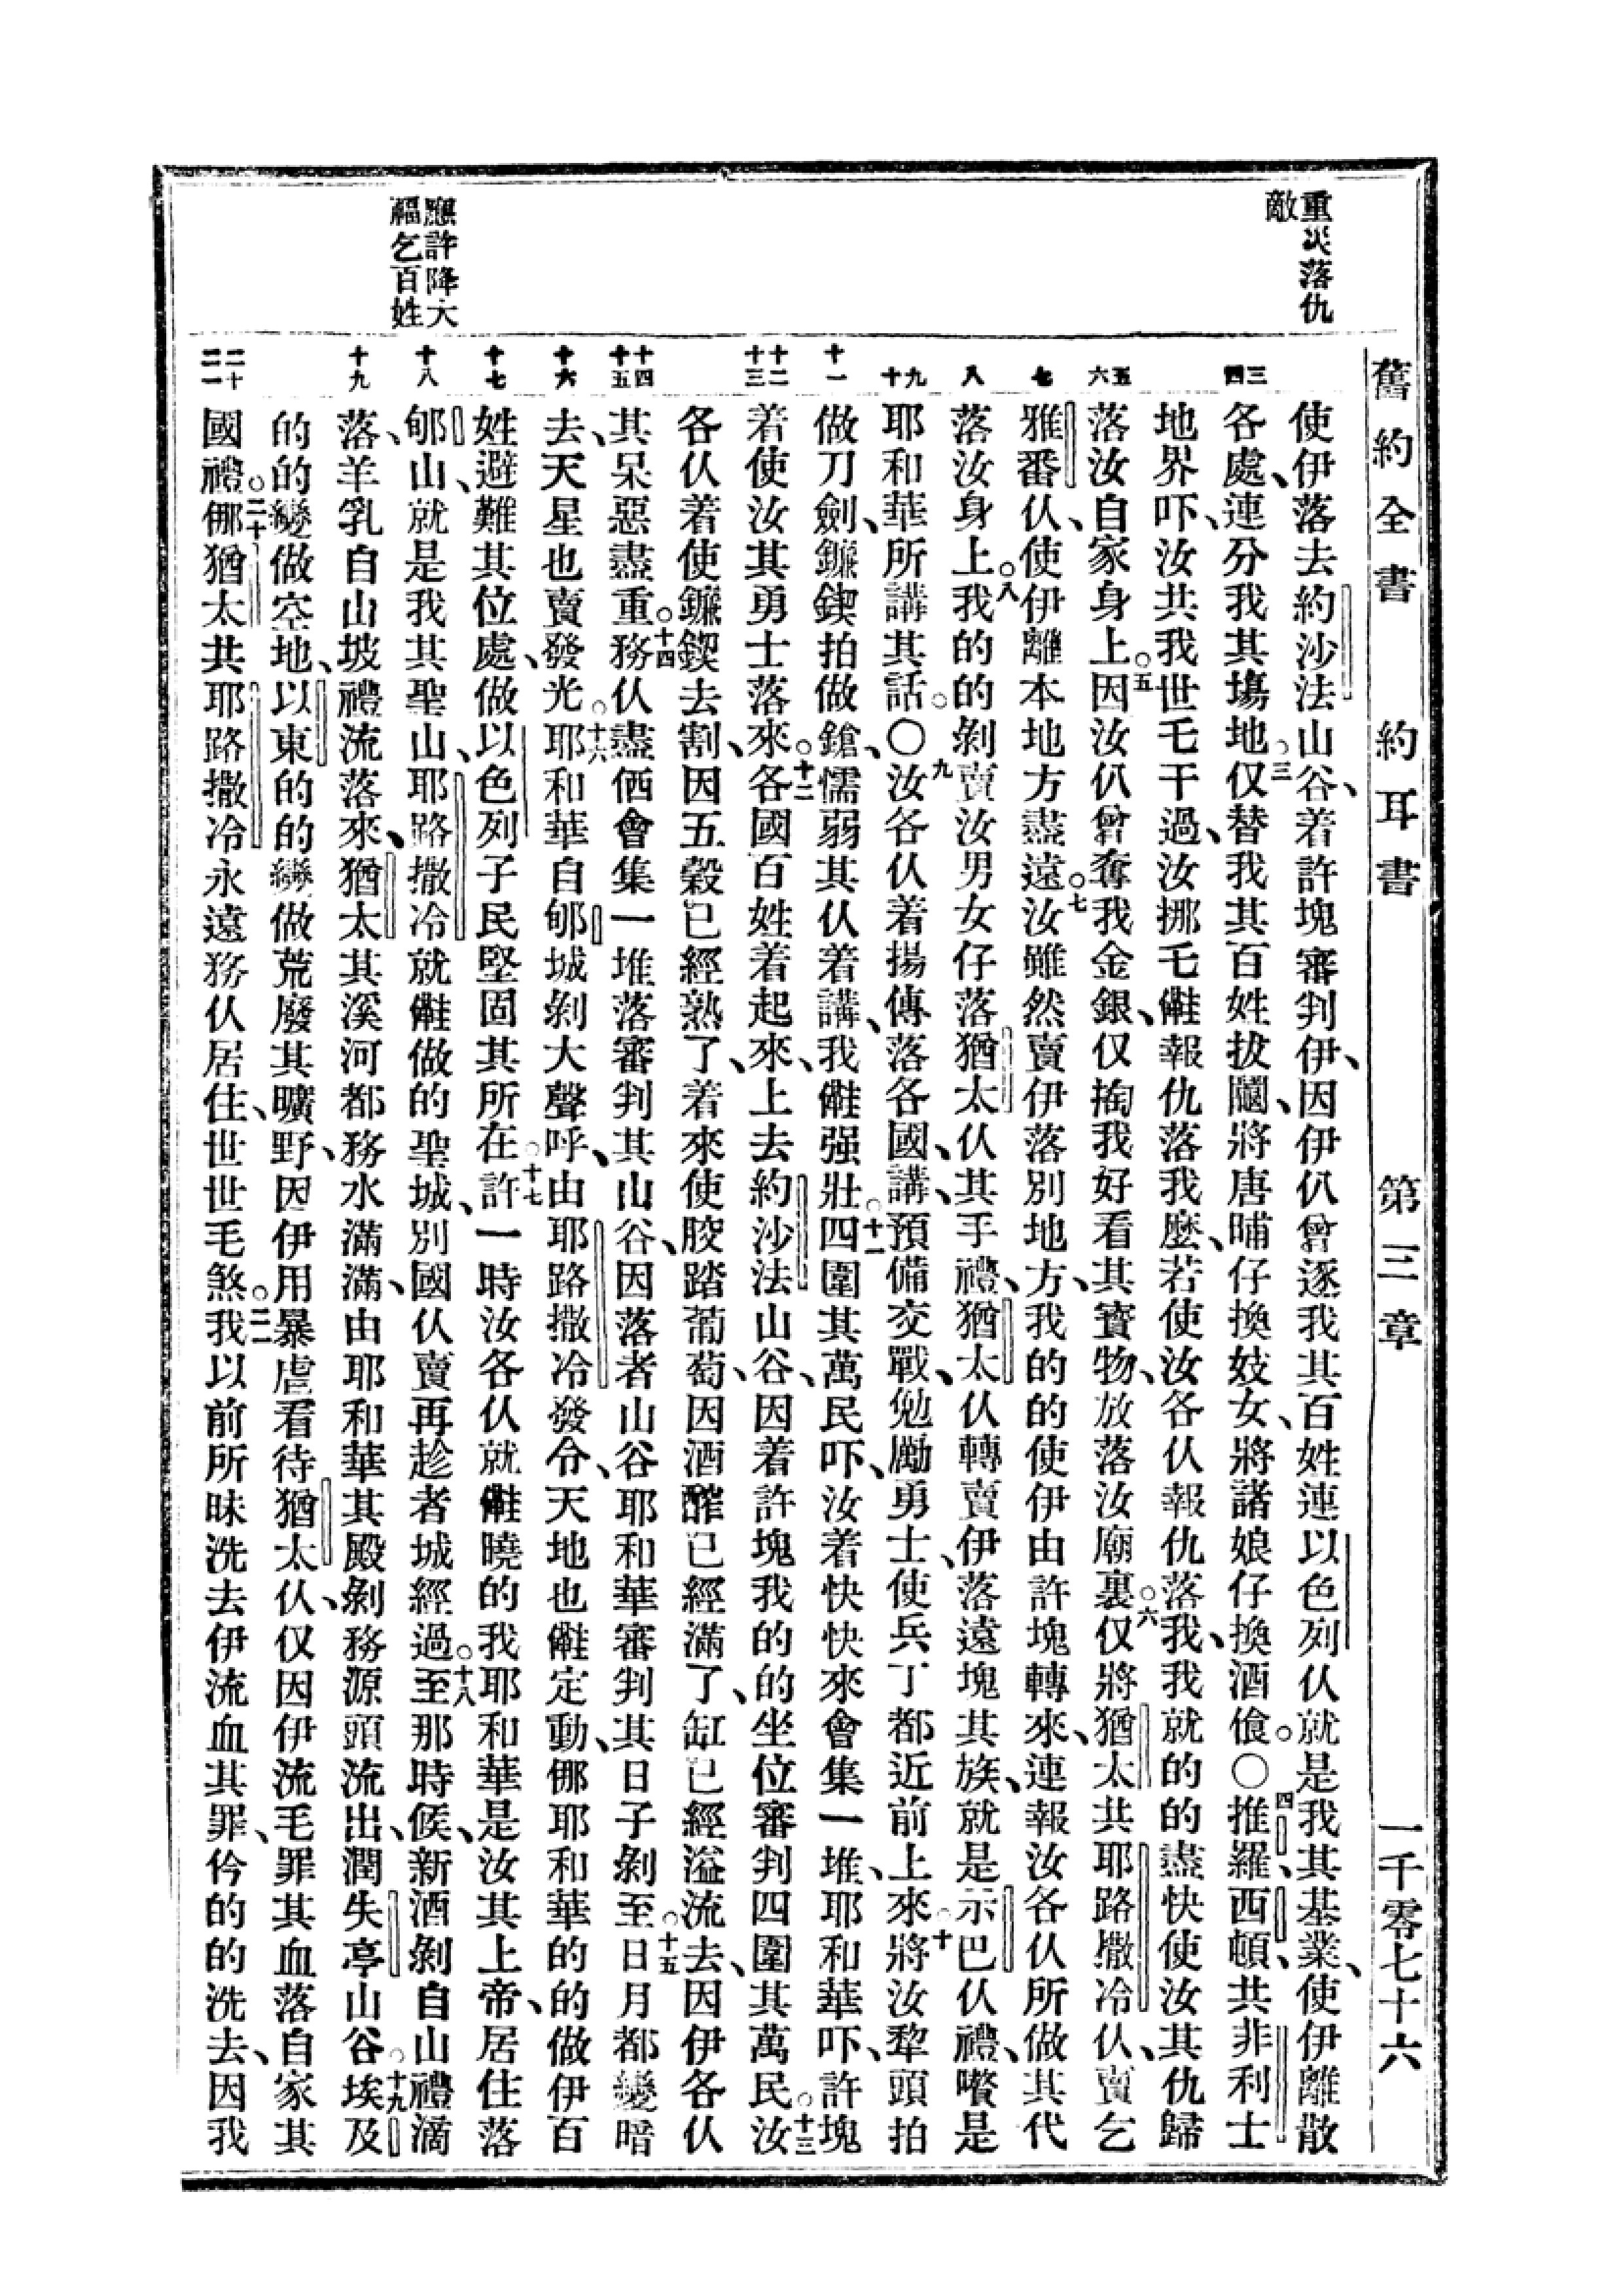 舊約全書 約耳書 第三章 一千零七十六
重災落仇
敵
應許降大
福乞百姓
三
四
五
六
七
八
九
十
十一
十二
十三
十四
十五
十六
十七
十八
十九
二十
二一
使伊落去約沙法山谷、着許塊審判伊、因伊仈曾逐我其百姓連以色列仈就是我其基業、使伊離散
各處、連分我其塲地。三仅替我其百姓拔鬮、將唐晡仔換妓女、將諸娘仔換酒飱。〇四推羅、西頓、共非利士
地界吓、汝共我世乇干過、汝挪乇報仇落我麽、若使汝各仈報仇落我、我就的的盡快使汝其仇歸
落汝自家身上。五因汝仈曾奪我金銀、仅掏我好看其寶物、放落汝廟裏。六仅將猶太共耶路撒冷仈、賣乞
雅番仈、使伊離本地方盡遠。七汝雖然賣伊落別地方、我的的使伊由許塊轉來、連報汝各仈所做其代
落汝身上。八我的的剝賣汝男女仔落猶太仈其手禮、猶太仈轉賣伊落遠塊其族、就是示巴仈禮、喀是
耶和華所講其話。〇九汝各仈着揚傳落各國、講、預備交戰、勉勵勇士、使兵丁都近前上來。十將汝犂頭拍
做刀劍、鐮鍥拍做鎗、懦弱其仈着講、我強壯。十一四圍其萬民吓、汝着快快來會集一堆、耶和華吓、許塊
着使汝其勇士落來。十二各國百姓着起來、上去約沙法山谷、因着許塊我的的坐位審判四圍其萬民。十三汝
各仈着使鐮鍥去割、因五穀已經熟了、着來使骹踏葡萄、因酒醡已經滿了、缸已經溢流去、因伊各仈
其呆惡盡重。十四務仈盡𠉣會集一堆落審判其山谷、因落者山谷耶和華審判其日子剝至。十五日月都變暗
去、天星也賣發光。十六耶和華自郇城剝大聲呼、由耶路撒冷發令、天地也定動、㑚耶和華的的做伊百
姓避難其位處、做以色列子民堅固其所在。十七許一時汝各仈就曉的我耶和華、是汝其上帝、居住落
郇山、就是我其聖山、耶路撒冷就做的聖城、別國仈賣再趁者城經過。十八至那時候、新酒剝自山禮滴
落、羊乳自山坡禮流落來、猶太其溪河都務水滿滿、由耶和華其殿剝務源頭流出、潤失亭山谷。十九埃及
的的變做空地、以東的的變做荒廢其曠野、因伊用暴虐看待猶太仈、仅因伊流毛罪其血落自家其
國禮。二十㑚猶太共耶路撒冷永遠務仈居住、世世毛煞。二一我以前所昧洗去伊流血其罪、仱的的洗去、因我